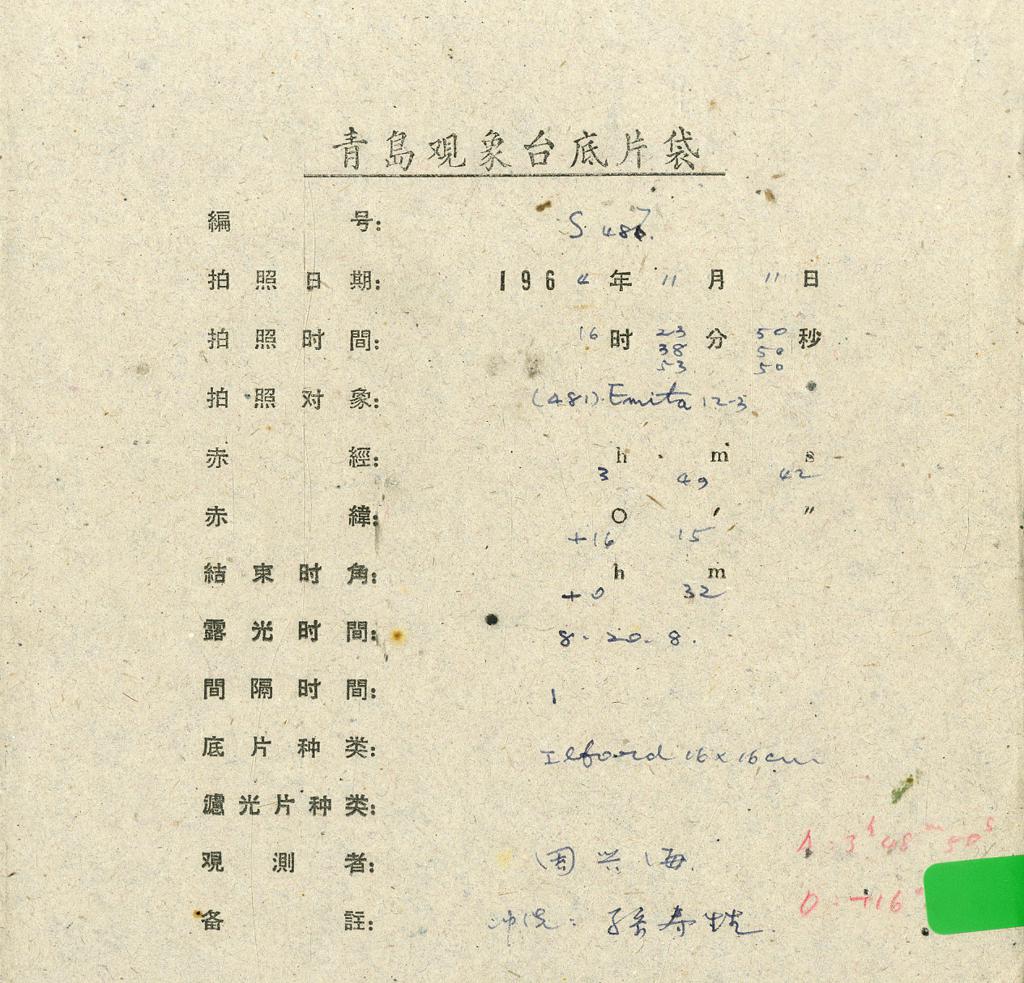 青島观象台底片袋
編号: S 487.
拍照日期: 1964年11月11日
拍照时間: 16时23分50秒
38 50
53 50
拍照对象: (481) Emita 12-3
赤經: 3h 49m 42s
赤緯: +16° 15′ ″
結束时角: +0h 32m
露光时間: 8. 20. 8.
間隔时間: 1
底片种类: Ilford 16×16cm
濾光片种类:
观測者: 周兴海
A: 3h 48m 50s
备註: 冲洗: 孫寿
D: +16°